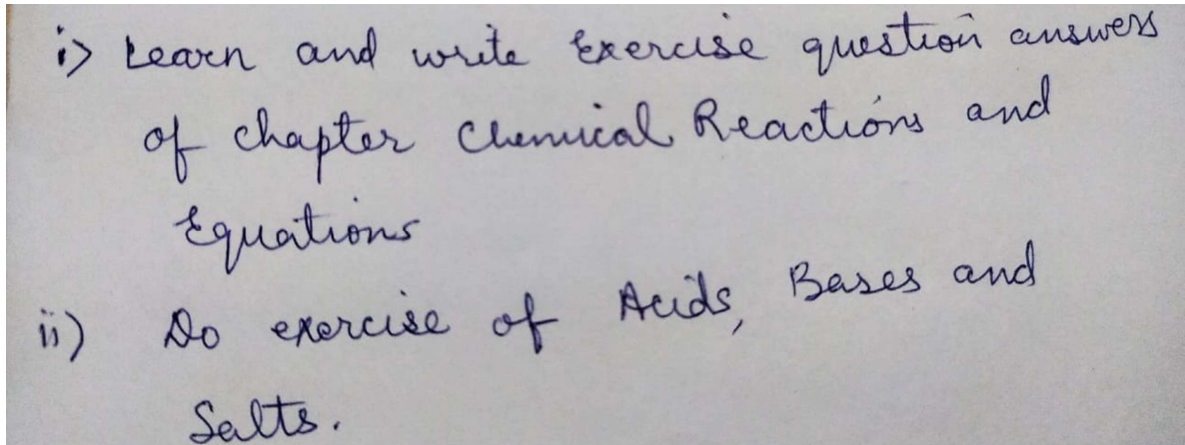 i> Learn and write Exercise question answers
of chapter Chemical Reactions and
Equations
ii) Do exercise of Acids, Bases and
Salts.